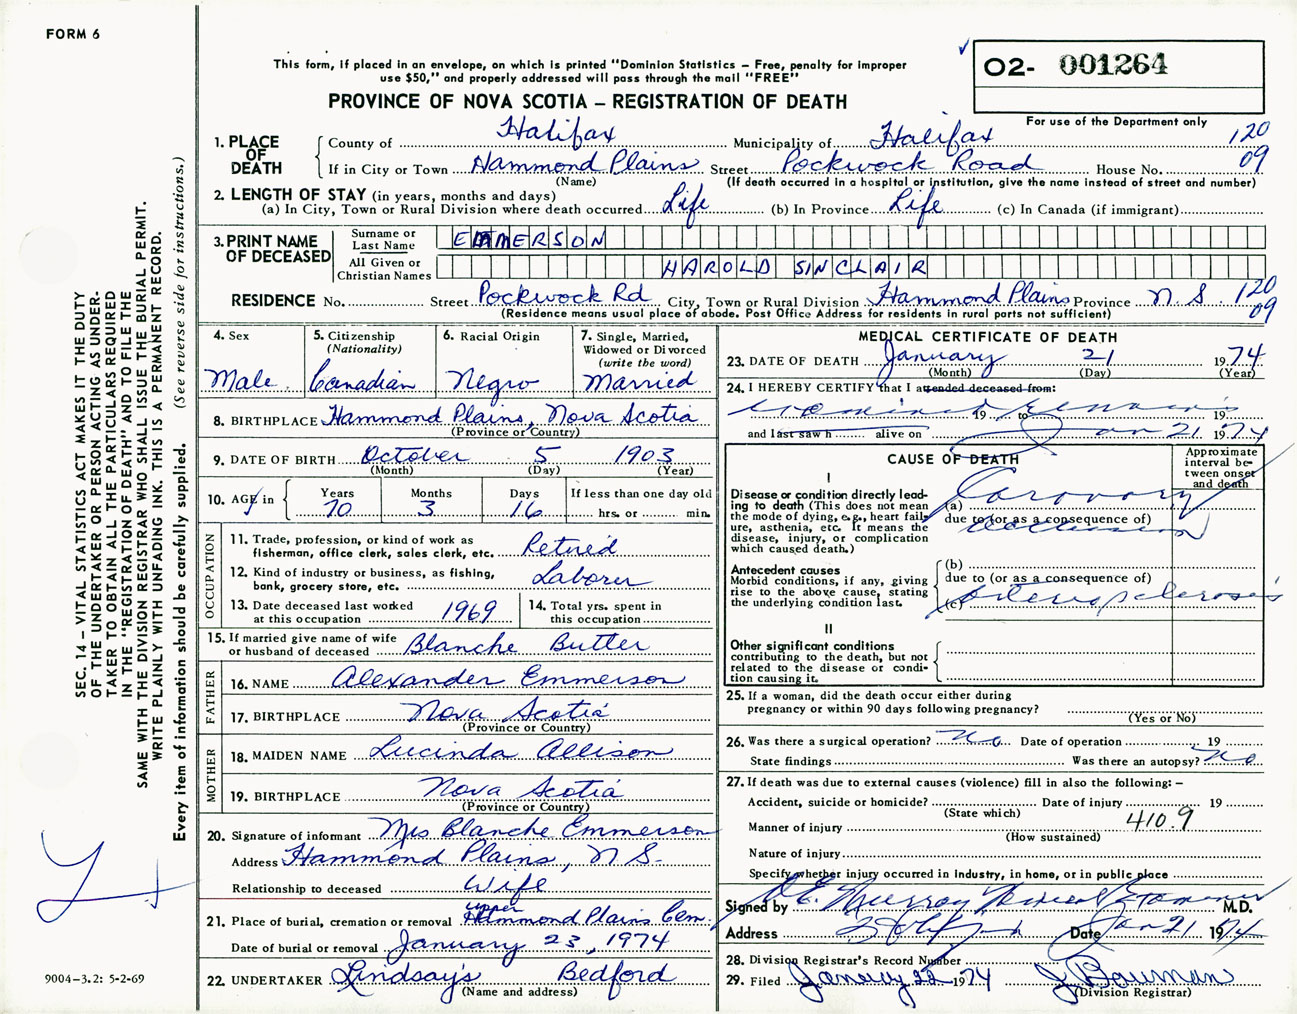 FORM 6
This form, if placed in an envelope, on which is printed "Dominion Statistics – Free, penalty for improper
use $50," and properly addressed will pass through the mail "FREE"
O2- 001264
PROVINCE OF NOVA SCOTIA – REGISTRATION OF DEATH
For use of the Department only
1. PLACE OF DEATH
County of Halifax Municipality of Halifax 120
If in City or Town Hammond Plains Street Pockwock Road House No. 09
(Name) (If death occurred in a hospital or institution, give the name instead of street and number)
2. LENGTH OF STAY (in years, months and days)
(a) In City, Town or Rural Division where death occurred Life (b) In Province Life (c) In Canada (if immigrant)
3. PRINT NAME OF DECEASED
Surname or Last Name EMMERSON
All Given or Christian Names HAROLD SINCLAIR
RESIDENCE No. Street Pockwock Rd City, Town or Rural Division Hammond Plains Province N S. 120 09
(Residence means usual place of abode. Post Office Address for residents in rural parts not sufficient)
4. Sex
Male
5. Citizenship
(Nationality)
Canadian
6. Racial Origin
Negro
7. Single, Married,
Widowed or Divorced
(write the word)
Married
8. BIRTHPLACE Hammond Plains, Nova Scotia
(Province or Country)
9. DATE OF BIRTH October 5 1903
(Month) (Day) (Year)
10. AGE in
Years Months Days If less than one day old
70 3 16 hrs. or min.
OCCUPATION
11. Trade, profession, or kind of work as
fisherman, office clerk, sales clerk, etc. Retired
12. Kind of industry or business, as fishing,
bank, grocery store, etc. Laborer
13. Date deceased last worked
at this occupation 1969
14. Total yrs. spent in
this occupation
15. If married give name of wife
or husband of deceased Blanche Butler
FATHER
16. NAME Alexander Emmerson
17. BIRTHPLACE Nova Scotia
(Province or Country)
MOTHER
18. MAIDEN NAME Lucinda Allison
19. BIRTHPLACE Nova Scotia
(Province or Country)
20. Signature of informant Mrs Blanche Emmerson
Address Hammond Plains, N S.
Relationship to deceased Wife
upper
21. Place of burial, cremation or removal Hammond Plains Cem.
Date of burial or removal January 23, 1974
22. UNDERTAKER Lindsay's Bedford
(Name and address)
MEDICAL CERTIFICATE OF DEATH
23. DATE OF DEATH January 21 1974
(Month) (Day) (Year)
24. I HEREBY CERTIFY that I attended deceased from:
19 to 19
and last saw h alive on Jan 21 1974
CAUSE OF DEATH
Approximate
interval be-
tween onset
and death
I
Disease or condition directly lead-
ing to death (This does not mean
the mode of dying, e.g., heart fail-
ure, asthenia, etc. It means the
disease, injury, or complication
which caused death.)
(a) Coronary
due to (or as a consequence of)
occlusion
Antecedent causes
Morbid conditions, if any, giving
rise to the above cause, stating
the underlying condition last.
(b)
due to (or as a consequence of)
(c) arteriosclerosis
II
Other significant conditions
contributing to the death, but not
related to the disease or condi-
tion causing it.
25. If a woman, did the death occur either during
pregnancy or within 90 days following pregnancy?
(Yes or No)
26. Was there a surgical operation? No Date of operation 19
State findings Was there an autopsy? No
27. If death was due to external causes (violence) fill in also the following: –
Accident, suicide or homicide? Date of injury 19
(State which)
Manner of injury 410.9
(How sustained)
Nature of injury
Specify whether injury occurred in industry, in home, or in public place
Signed by D E. Murray Medical Examiner M.D.
Address Date Jan 21 1974
28. Division Registrar's Record Number
29. Filed January 22 1974 J Bauman
(Division Registrar)
SEC. 14 – VITAL STATISTICS ACT MAKES IT THE DUTY
OF THE UNDERTAKER OR PERSON ACTING AS UNDER-
TAKER TO OBTAIN ALL THE PARTICULARS REQUIRED
IN THE "REGISTRATION OF DEATH" AND TO FILE THE
SAME WITH THE DIVISION REGISTRAR WHO SHALL ISSUE THE BURIAL PERMIT.
WRITE PLAINLY WITH UNFADING INK. THIS IS A PERMANENT RECORD.
Every item of information should be carefully supplied. (See reverse side for instructions.)
9004–3.2: 5-2-69